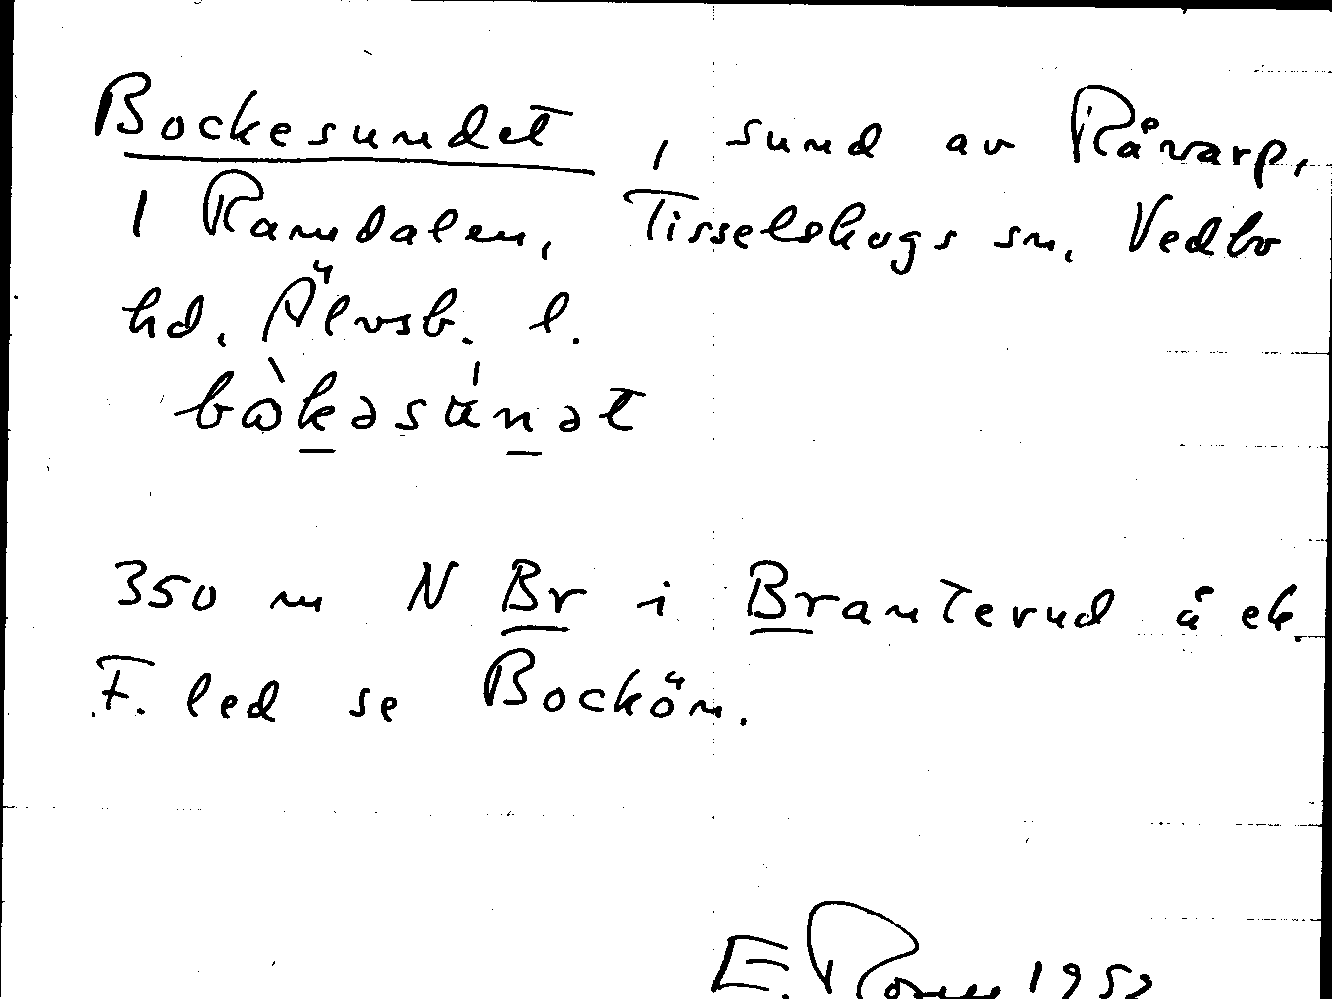 Bockesundet, sund av Råvarp,
1 Ramdalen, Tisselskogs sn. Vedbo
hd. Älvsb. l.
350 m N Br i Branterud å ek.
F. led se Bockön.
E. 1952